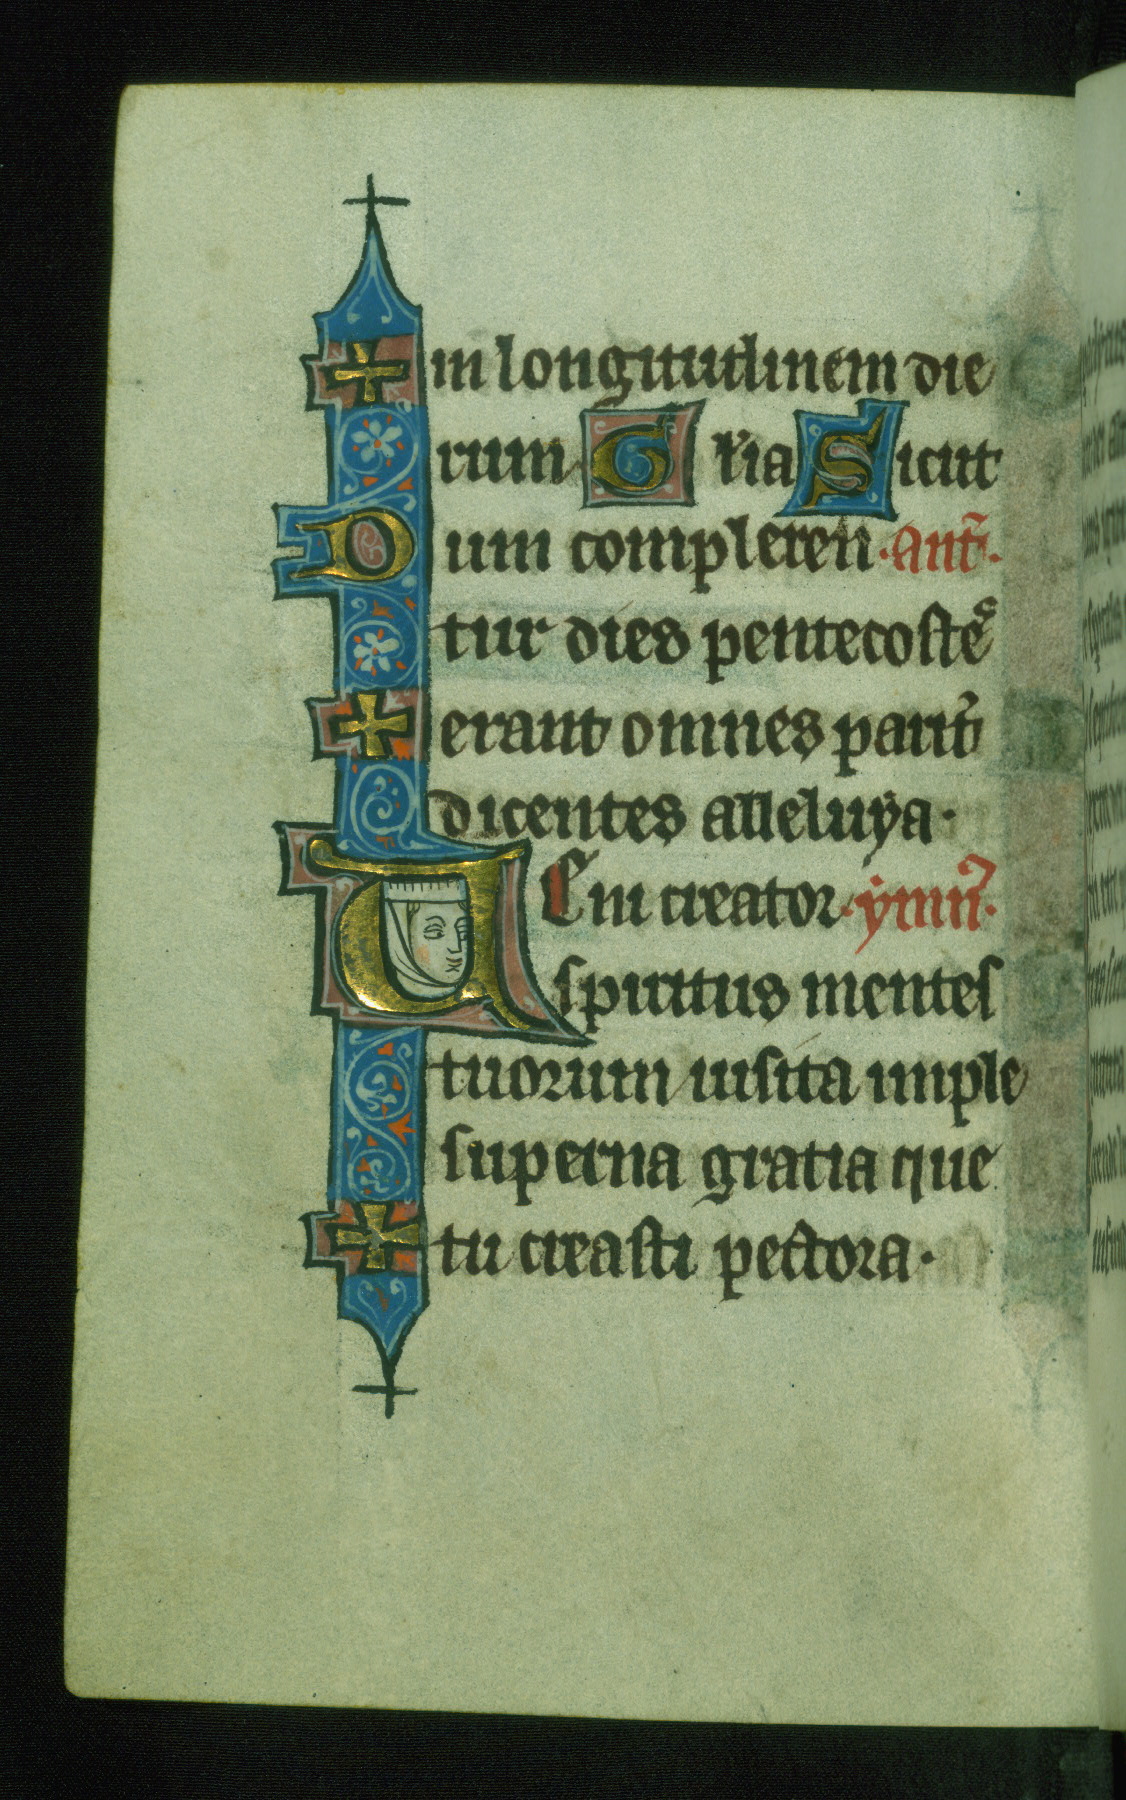 in longitudinem die
rum Gl'ia Sicut
Dum compleren·ant̄·
tur dies pentecoste᷒
erant omnes parit̾
dicentes alleluẏa·
UEni creator·ẏmn̄·
spiritus mentes
tuorum uisita imple
superna gratia que
tu creasti pectora·